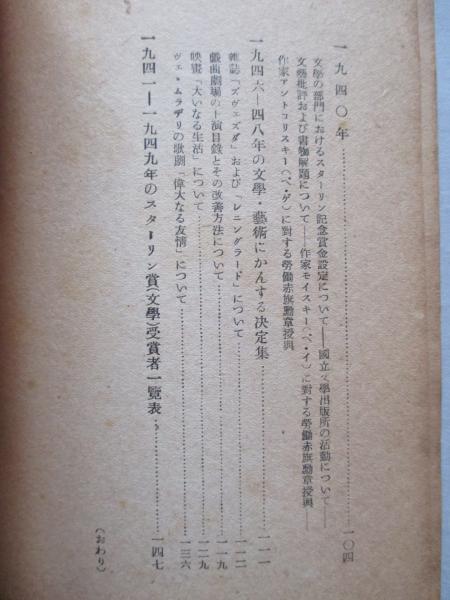 一九四〇年……一〇四
文學の部門におけるスターリン記念賞金設定について——國立文學出版所の活動について——
文藝批評および書物解題について——作家モイスキー(ペ・イ)に對する勞働赤旗勳章授與——
作家アントコリスキー(ペ・ゲ)に對する勞働赤旗勳章授與
一九四六—四八年の文學・藝術にかんする決定集……一一一
雜誌「ズヴェズダ」および「レニングラード」について……一一二
戲曲劇場の上演目錄とその改善方法について……一一九
映畫「大いなる生活」について……一二九
ヴェ・ムラデリの歌劇「偉大なる友情」について……一三六
一九四一—一九四九年のスターリン賞(文學)受賞者一覽表……一四七
(おわり)